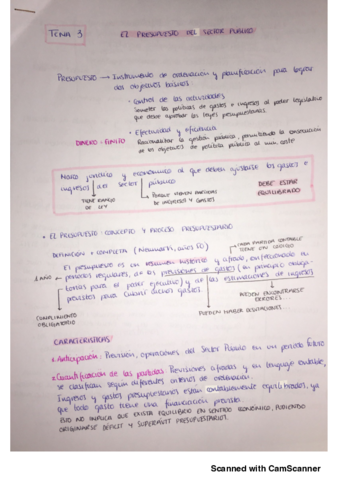 TEMA 3 EL PRESUPUESTO DEL SECTOR PÚBLICO
PRESUPUESTO → Instrumento de ordenación y planificación para lograr
dos objetivos básicos
· Control de las actividades
someter las políticas de gastos e ingresos al poder legislativo
que debe aprobar las leyes presupuestarias.
· Efectividad y eficiencia
DINERO = FINITO
Racionalizar la gestión pública, permitiendo la consecución
de los objetivos de política pública al min coste
Marco jurídico y económico al que deben ajustarse los gastos e
ingresos del sector público
TIENE RANGO
DE LEY
PORQUE TIENEN PARTIDAS
DE INGRESOS Y GASTOS
DEBE ESTAR
EQUILIBRADO
• EL PRESUPUESTO: CONCEPTO Y PROCESO PRESUPUESTARIO
DEFINICIÓN + COMPLETA (Neumark, años 50)
CADA PARTIDA CONTABLE
TIENE UN CÓDIGO
El presupuesto es un resumen histórico y cifrado, en
1 AÑO
periodos regulares, de las previsiones de gasto (en principio
para el poder ejecutivo) y de las estimaciones de ingresos
previstos para cubrir dichos gastos.
CUMPLIMIENTO
OBLIGATORIO
PUEDEN HABER DESVIACIONES...
PUEDEN
ERRORES
CARACTERÍSTICAS:
Anticipación. Previsión, operaciones del Sector Público en un período futuro
Cuantificación de las partidas. Previsiones cifradas y en lenguaje contable,
se clasifican según diferentes criterios de ordenación.
Ingresos y gastos presupuestarios están contablemente equilibrados, ya
que todo gasto tiene una financiación prevista.
ESTO NO IMPLICA QUE EXISTA EQUILIBRIO EN SENTIDO ECONÓMICO, PUDIENDO
ORIGINARSE DÉFICIT Y SUPERÁVIT PRESUPUESTARIOS.
Scanned with CamScanner